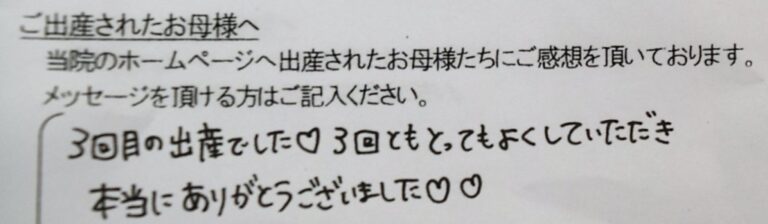 ご出産されたお母様へ
当院のホームページへ出産されたお母様たちにご感想を頂いております。
メッセージを頂ける方はご記入ください。
3回目の出産でした♡3回ともとってもよくしていただき
本当にありがとうございました♡♡